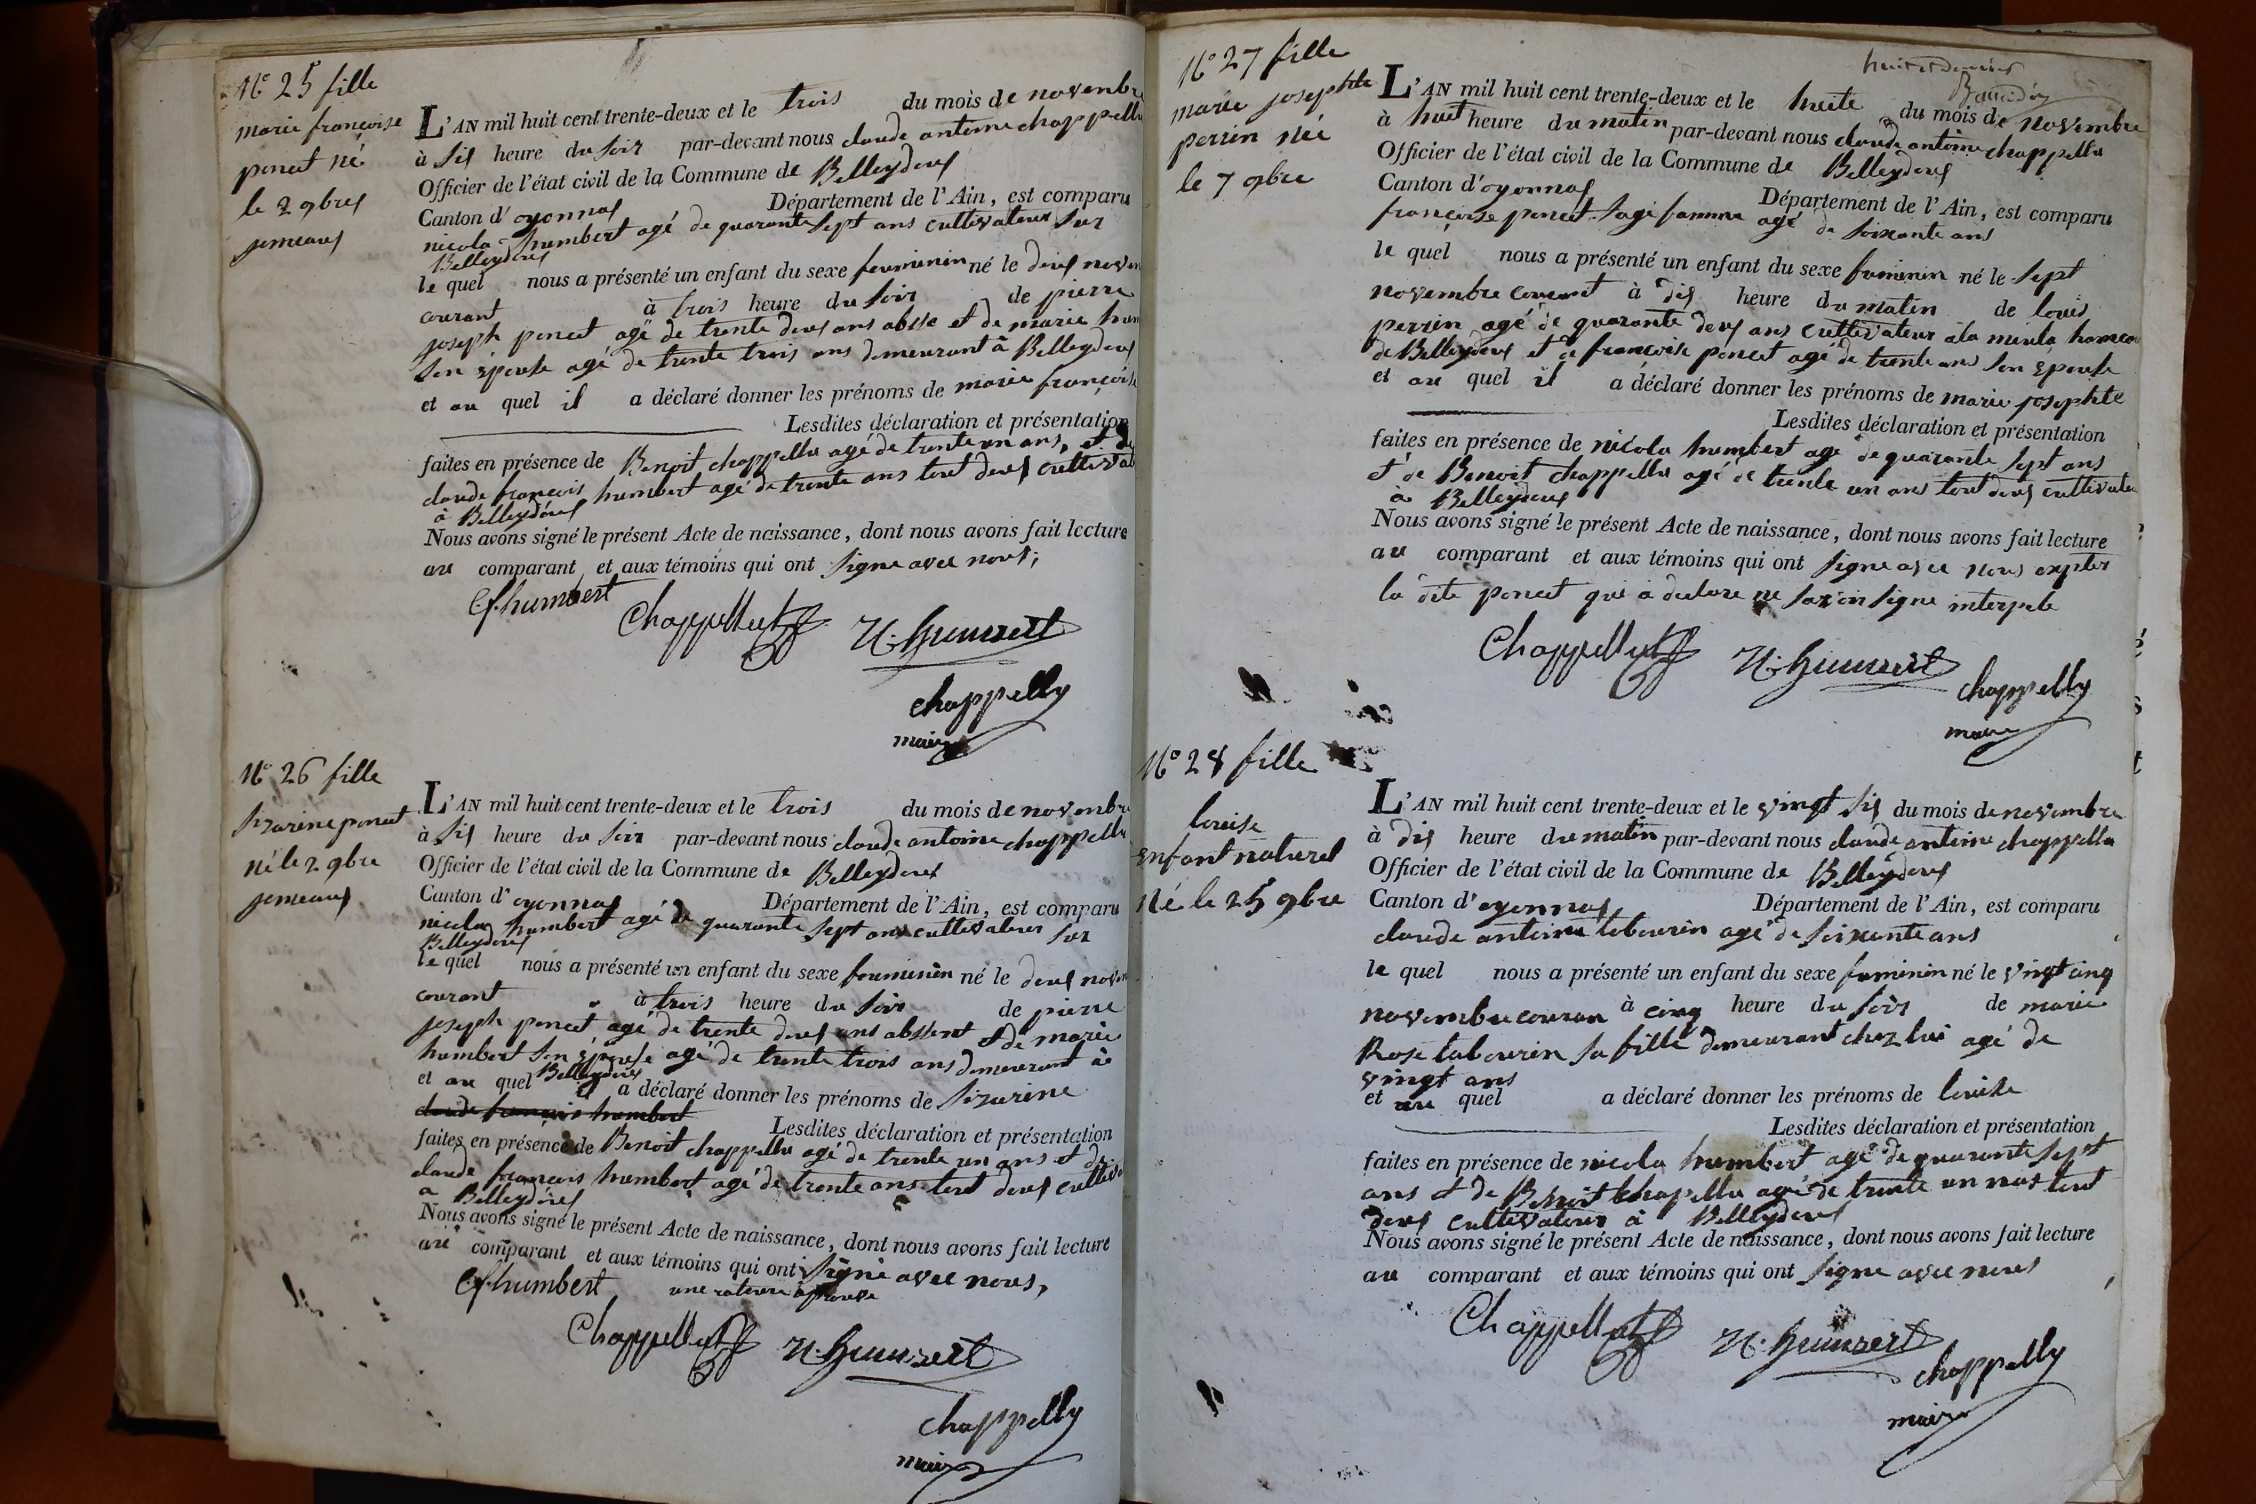 N° 25 fille
marie françoise
poncet né
le 2 9bres
jemeaux
L'AN mil huit cent trente-deux et le trois du mois de novembre
à six heure du soir par-devant nous claude antoine chappellu
Officier de l'état civil de la Commune de Belleydoux
Canton d'oyonnax Département de l'Ain, est comparu
nicola humbert agé de quarante sept ans cultivateur sur
Belleydoux
le quel nous a présenté un enfant du sexe feuminin né le deux novem
courant à trois heure du soir de pierre
joseph poncet agé de trente deux ans absse et de marie hum
son épouse agé de trente trois ans demeurant à Belleydoux
et au quel il a déclaré donner les prénoms de marie françoise
Lesdites déclaration et présentation
faites en présence de Benoit chappellu agé de trente un ans, et de
claude françois humbert agé de trente ans tout deux cultivat
à Belleydoux
Nous avons signé le présent Acte de naissance, dont nous avons fait lecture
au comparant et aux témoins qui ont signe avec nous;
Cf humbert
Chappellut N. humbert
chappelly
maire
N° 26 fille
sizarine poncet
né le 2 9bre
jemeaux
L'AN mil huit cent trente-deux et le trois du mois de novembre
à six heure du soir par-devant nous claude antoine chappellu
Officier de l'état civil de la Commune de Belleydoux
Canton d'oyonnax Département de l'Ain, est comparu
nicola humbert agé de quarante sept ans cultivateur sur
Belleydoux
le quel nous a présenté un enfant du sexe feuminin né le deux novem
courant à trois heure du soir de pierre
joseph poncet agé de trente deux ans absent et de marie
humbert son épouse agé de trente trois ans demeurant à
Belleydoux
et au quel il a déclaré donner les prénoms de sizarine
claude françois humbert
Lesdites déclaration et présentation
faites en présence de Benoit chappellu agé de trente un ans et de
claude françois humbert agé de trente ans tout deux cultiv
a Belleydoux
Nous avons signé le présent Acte de naissance, dont nous avons fait lecture
au comparant et aux témoins qui ont signé avec nous,
Cf humbert une rature aprouve
Chappellut N. humbert
chappelly
maire
N° 27 fille
marie josephte
perrin né
le 7 9bre
L'AN mil huit cent trente-deux et le huite du mois de novembre
à huit heure du matin par-devant nous claude antoine chappellu
Officier de l'état civil de la Commune de Belleydoux
Canton d'oyonnax Département de l'Ain, est comparu
françoise poncet sage famme agé de soixante ans
le quel nous a présenté un enfant du sexe feminin né le sept
novembre courant à dix heure du matin de louis
perrin agé de quarante deux ans cultivateur a la hameau
de Belleydoux et de françoise poncet agé de trente ans son épouse
et au quel il a déclaré donner les prénoms de marie josephte
Lesdites déclaration et présentation
faites en présence de nicola humbert agé de quarante sept ans
et de Benoit chappellu agé de trente un ans tout deux cultivateu
à Belleydoux
Nous avons signé le présent Acte de naissance, dont nous avons fait lecture
au comparant et aux témoins qui ont signe avec nous
la dite poncet qui a declare ne savoir signe interpele
Chappellut N. humbert
chappelly
maire
N° 28 fille
louise
Enfant naturel
Né le 25 9bre
L'AN mil huit cent trente-deux et le vingt six du mois de novembre
à dix heure du matin par-devant nous claude antoine chappellu
Officier de l'état civil de la Commune de Belleydoux
Canton d'oyonnax Département de l'Ain, est comparu
claude antoine tabourin agé de soixante ans
le quel nous a présenté un enfant du sexe feminin né le vingt cinq
novembre couran à cinq heure du soir de marie
Rose tabourin sa fille demeurant chez lui agé de
vingt ans
et au quel a déclaré donner les prénoms de louise
Lesdites déclaration et présentation
faites en présence de nicola humbert agé de quarante sept
ans et de Benoit chapellu agé de trente un tout
deux cultivateur à Belleydoux
Nous avons signé le présent Acte de naissance, dont nous avons fait lecture
au comparant et aux témoins qui ont signe avec nous
Chappellut N. humbert
chappelly
maire